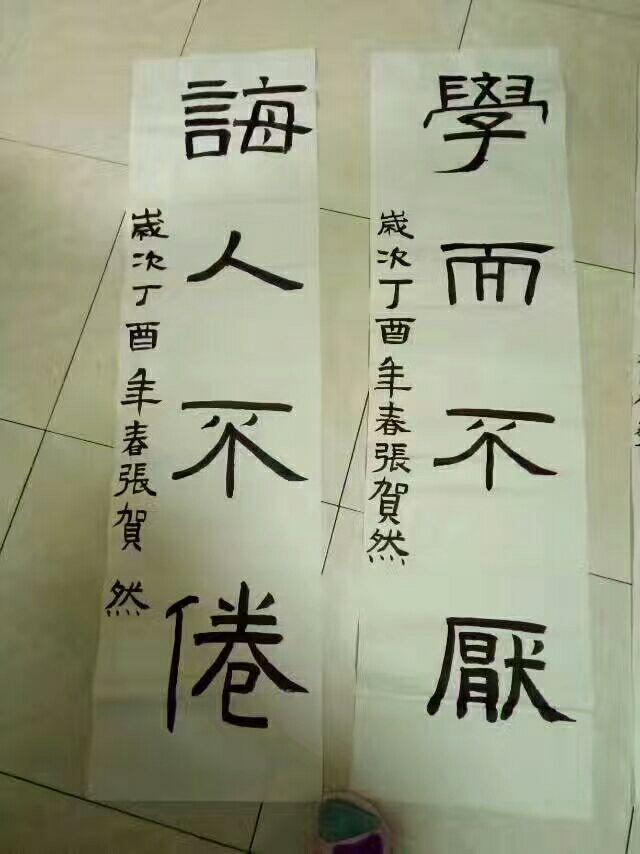 學而不厭
歲次丁酉年春張賀然
誨人不倦
歲次丁酉年春張賀然